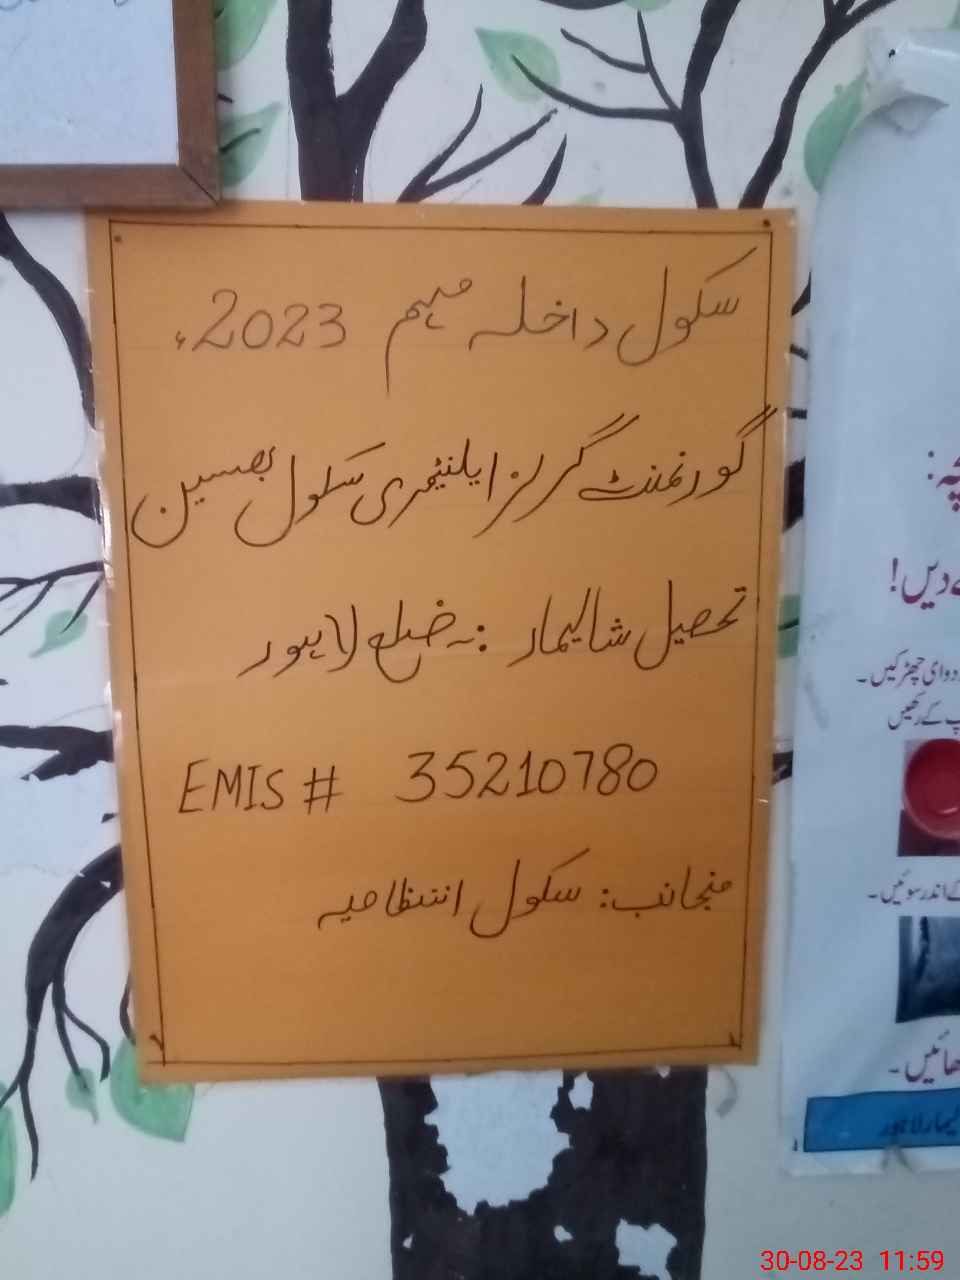 سکول داخلہ مہم 2023ء
گورنمنٹ گرلز ایلیمنٹری سکول بھسین
تحصیل شالیمار :۔ ضلع لاہور
EMIS # 35210780
منجانب: سکول انتظامیہ
دیں!
دوای چھڑکیں۔
کے رکھیں
کے اندر سوئیں۔
لاہور
30-08-23 11:59